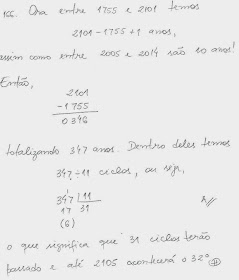 166. Ora entre 1755 e 2101 temos
2101 - 1755 + 1 anos,
assim como entre 2005 e 2014 são 10 anos!
Então,
2101
-1755
0346
totalizando 347 anos. Dentro deles temos
347 ÷ 11 ciclos, ou seja,
347 11
17 31
(6)
o que significa que 31 ciclos terão
passado e até 2105 acontecerá o 32º